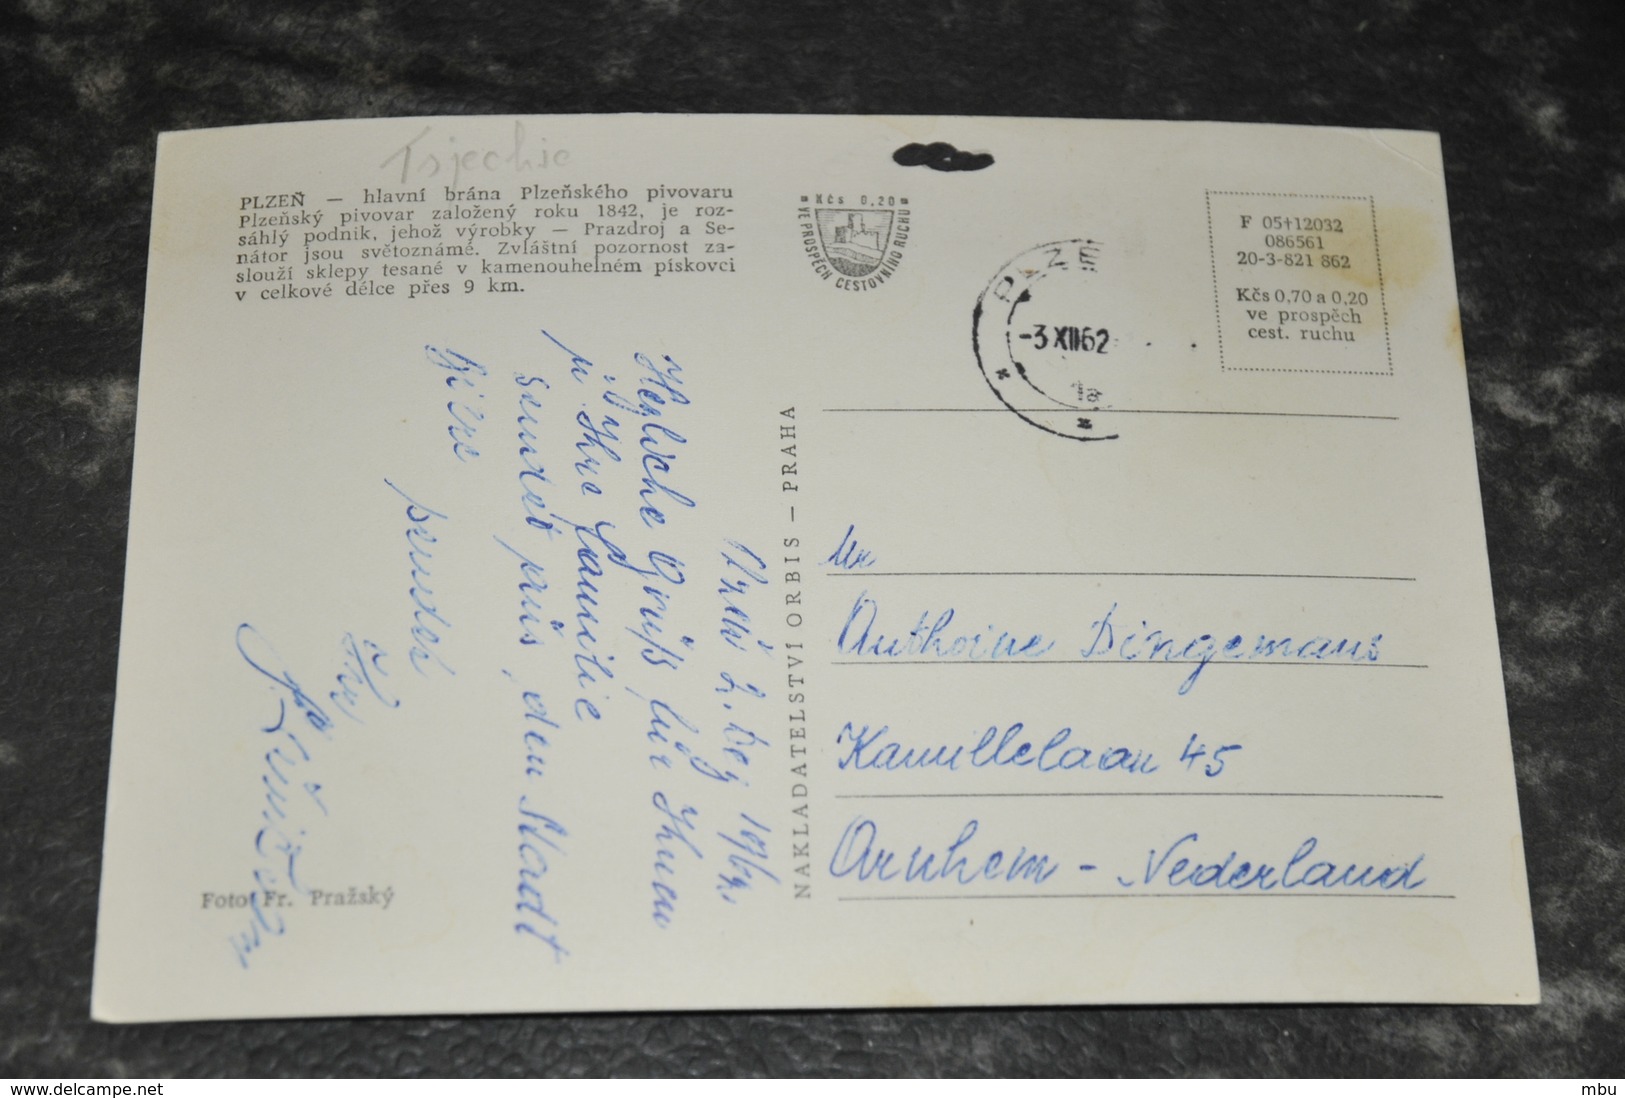 Tsjechie
PLZEŇ — hlavní brána Plzeňského pivovaru
Plzeňský pivovar založený roku 1842, je roz-
sáhlý podnik, jehož výrobky — Prazdroj a Se-
nátor jsou světoznámé. Zvláštní pozornost za-
slouží sklepy tesané v kamenouhelném pískovci
v celkové délce přes 9 km.
Kčs 0,20
VE PROSPĚCH CESTOVNÍHO RUCHU
-3 XII 62
1a
F 05†12032
086561
20-3-821 862
Kčs 0,70 a 0,20
ve prospěch
cest. ruchu
Plzeň 2. Dez
Herzliche Grüße für Ihnen
u. Ihre Familie
sendet aus, den Stadt
Biere
sendet
Ihr
Foto Fr. Pražský
NAKLADATELSTVÍ ORBIS — PRAHA
Mr
Anthoine Dingemans
Kamillelaan 45
Arnhem - Nederland
delcampe.net
mbu